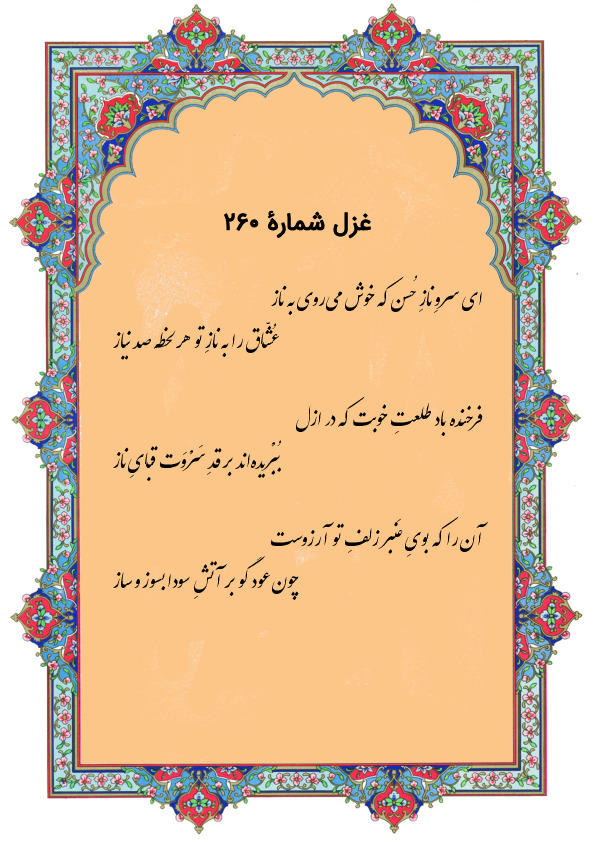 غزل شمارهٔ ۲۶۰
ای سروِ نازِ حُسن که خوش می‌روی به ناز
عُشّاق را به نازِ تو هر لحظه صد نیاز
فرخنده باد طلعتِ خوبت که در ازل
بُبْریده‌اند بر قدِ سَرْوَت قبایِ ناز
آن را که بویِ عَنبر زلفِ تو آرزوست
چون عود گو بر آتشِ سودا بسوز و ساز